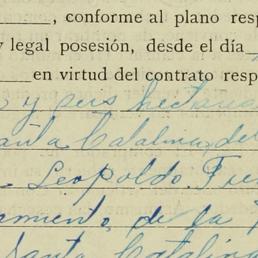 , conforme al plano resp
y legal posesión, desde el día
en virtud del contrato resp
y seis hectáreas
Santa Catalina del
Leopoldo Fue
amiento de la
Santa Catalina